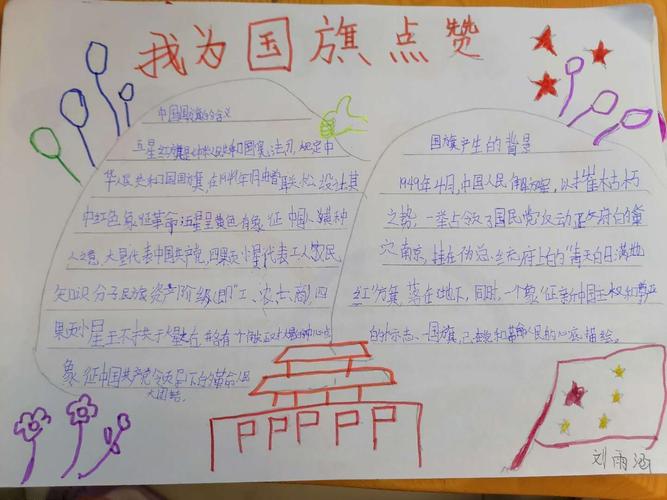 我为国旗点赞
中国国旗的含义
五星红旗是中华人民共和国宪法明规定中
华人民共和国国旗,在1949年月由曾联松设计其
中红色象征革命五星呈黄色有象征中国人黄种
人之意,大星代表中国共产党,四颗小星代表工人农民
知识分子民族资产阶级(即"工、农、士、商)四
颗小星 于大星 右并各有个
象征中国共产党领导下的革命人民
大团结。
国旗产生的背景
1949年4月,中国人民解放军,以摧枯朽
之势,一举占领了国民党反动政府的巢
穴南京,挂在伪总统府上的"青天白日满地
红"旗 落在地下,同时,一个象征新中国主权和尊严
的标志、国旗,已 和 人民的心底描绘。
P P P P P
刘雨涵